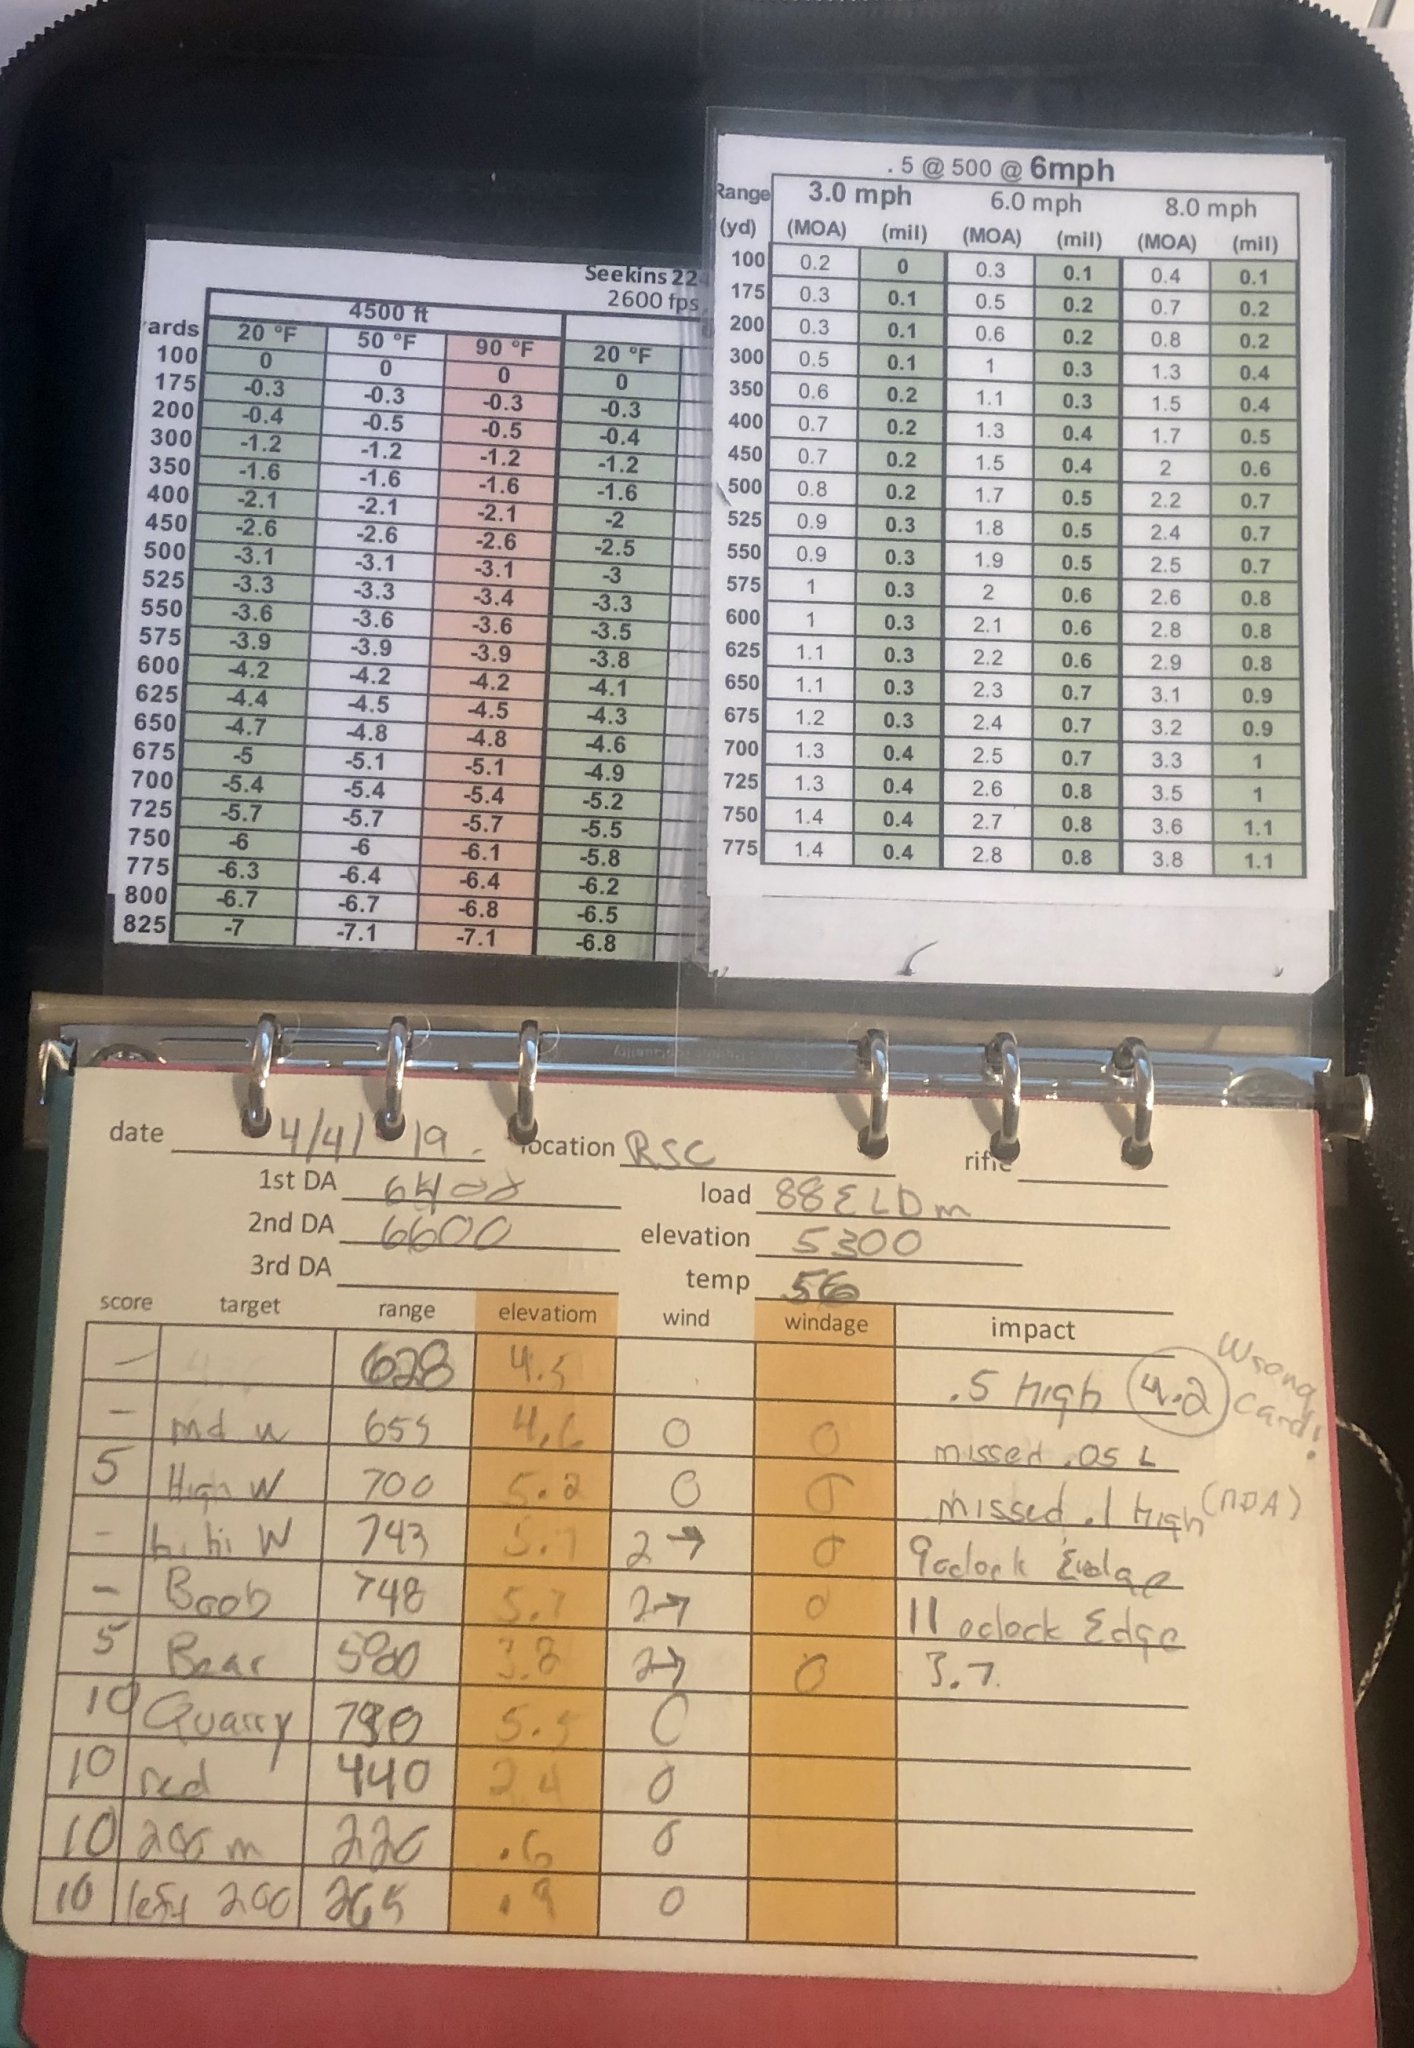 Seekins 22
2600 fps
4500 ft
ards 20 °F 50 °F 90 °F 20 °F
100 0 0 0 0
175 -0.3 -0.3 -0.3 -0.3
200 -0.4 -0.5 -0.5 -0.4
300 -1.2 -1.2 -1.2 -1.2
350 -1.6 -1.6 -1.6 -1.6
400 -2.1 -2.1 -2.1 -2
450 -2.6 -2.6 -2.6 -2.5
500 -3.1 -3.1 -3.1 -3
525 -3.3 -3.3 -3.4 -3.3
550 -3.6 -3.6 -3.6 -3.5
575 -3.9 -3.9 -3.9 -3.8
600 -4.2 -4.2 -4.2 -4.1
625 -4.4 -4.5 -4.5 -4.3
650 -4.7 -4.8 -4.8 -4.6
675 -5 -5.1 -5.1 -4.9
700 -5.4 -5.4 -5.4 -5.2
725 -5.7 -5.7 -5.7 -5.5
750 -6 -6 -6.1 -5.8
775 -6.3 -6.4 -6.4 -6.2
800 -6.7 -6.7 -6.8 -6.5
825 -7 -7.1 -7.1 -6.8
.5 @ 500 @ 6mph
Range 3.0 mph 6.0 mph 8.0 mph
(yd) (MOA) (mil) (MOA) (mil) (MOA) (mil)
100 0.2 0 0.3 0.1 0.4 0.1
175 0.3 0.1 0.5 0.2 0.7 0.2
200 0.3 0.1 0.6 0.2 0.8 0.2
300 0.5 0.1 1 0.3 1.3 0.4
350 0.6 0.2 1.1 0.3 1.5 0.4
400 0.7 0.2 1.3 0.4 1.7 0.5
450 0.7 0.2 1.5 0.4 2 0.6
500 0.8 0.2 1.7 0.5 2.2 0.7
525 0.9 0.3 1.8 0.5 2.4 0.7
550 0.9 0.3 1.9 0.5 2.5 0.7
575 1 0.3 2 0.6 2.6 0.8
600 1 0.3 2.1 0.6 2.8 0.8
625 1.1 0.3 2.2 0.6 2.9 0.8
650 1.1 0.3 2.3 0.7 3.1 0.9
675 1.2 0.3 2.4 0.7 3.2 0.9
700 1.3 0.4 2.5 0.7 3.3 1
725 1.3 0.4 2.6 0.8 3.5 1
750 1.4 0.4 2.7 0.8 3.6 1.1
775 1.4 0.4 2.8 0.8 3.8 1.1
date 4/4/19 location RSC rifle
1st DA 6400 load 88 ELDm
2nd DA 6600 elevation 5300
3rd DA temp 56
score target range elevatiom wind windage impact
– 628 4.5 .5 high 4.2 Wrong Card!
– md w 655 4.6 0 0 missed .05 L
5 High W 700 5.2 0 0 missed .1 high (NDA)
– hi hi W 743 5.7 2→ 0 9oclock Edge
– Boob 748 5.7 2→ 0 11 oclock Edge
5 Bear 580 3.8 2→ 0 3.7
10 Quarry 730 5.5 0
10 red 440 2.4 0
10 200 m 220 .6 0
10 left 200 265 .9 0